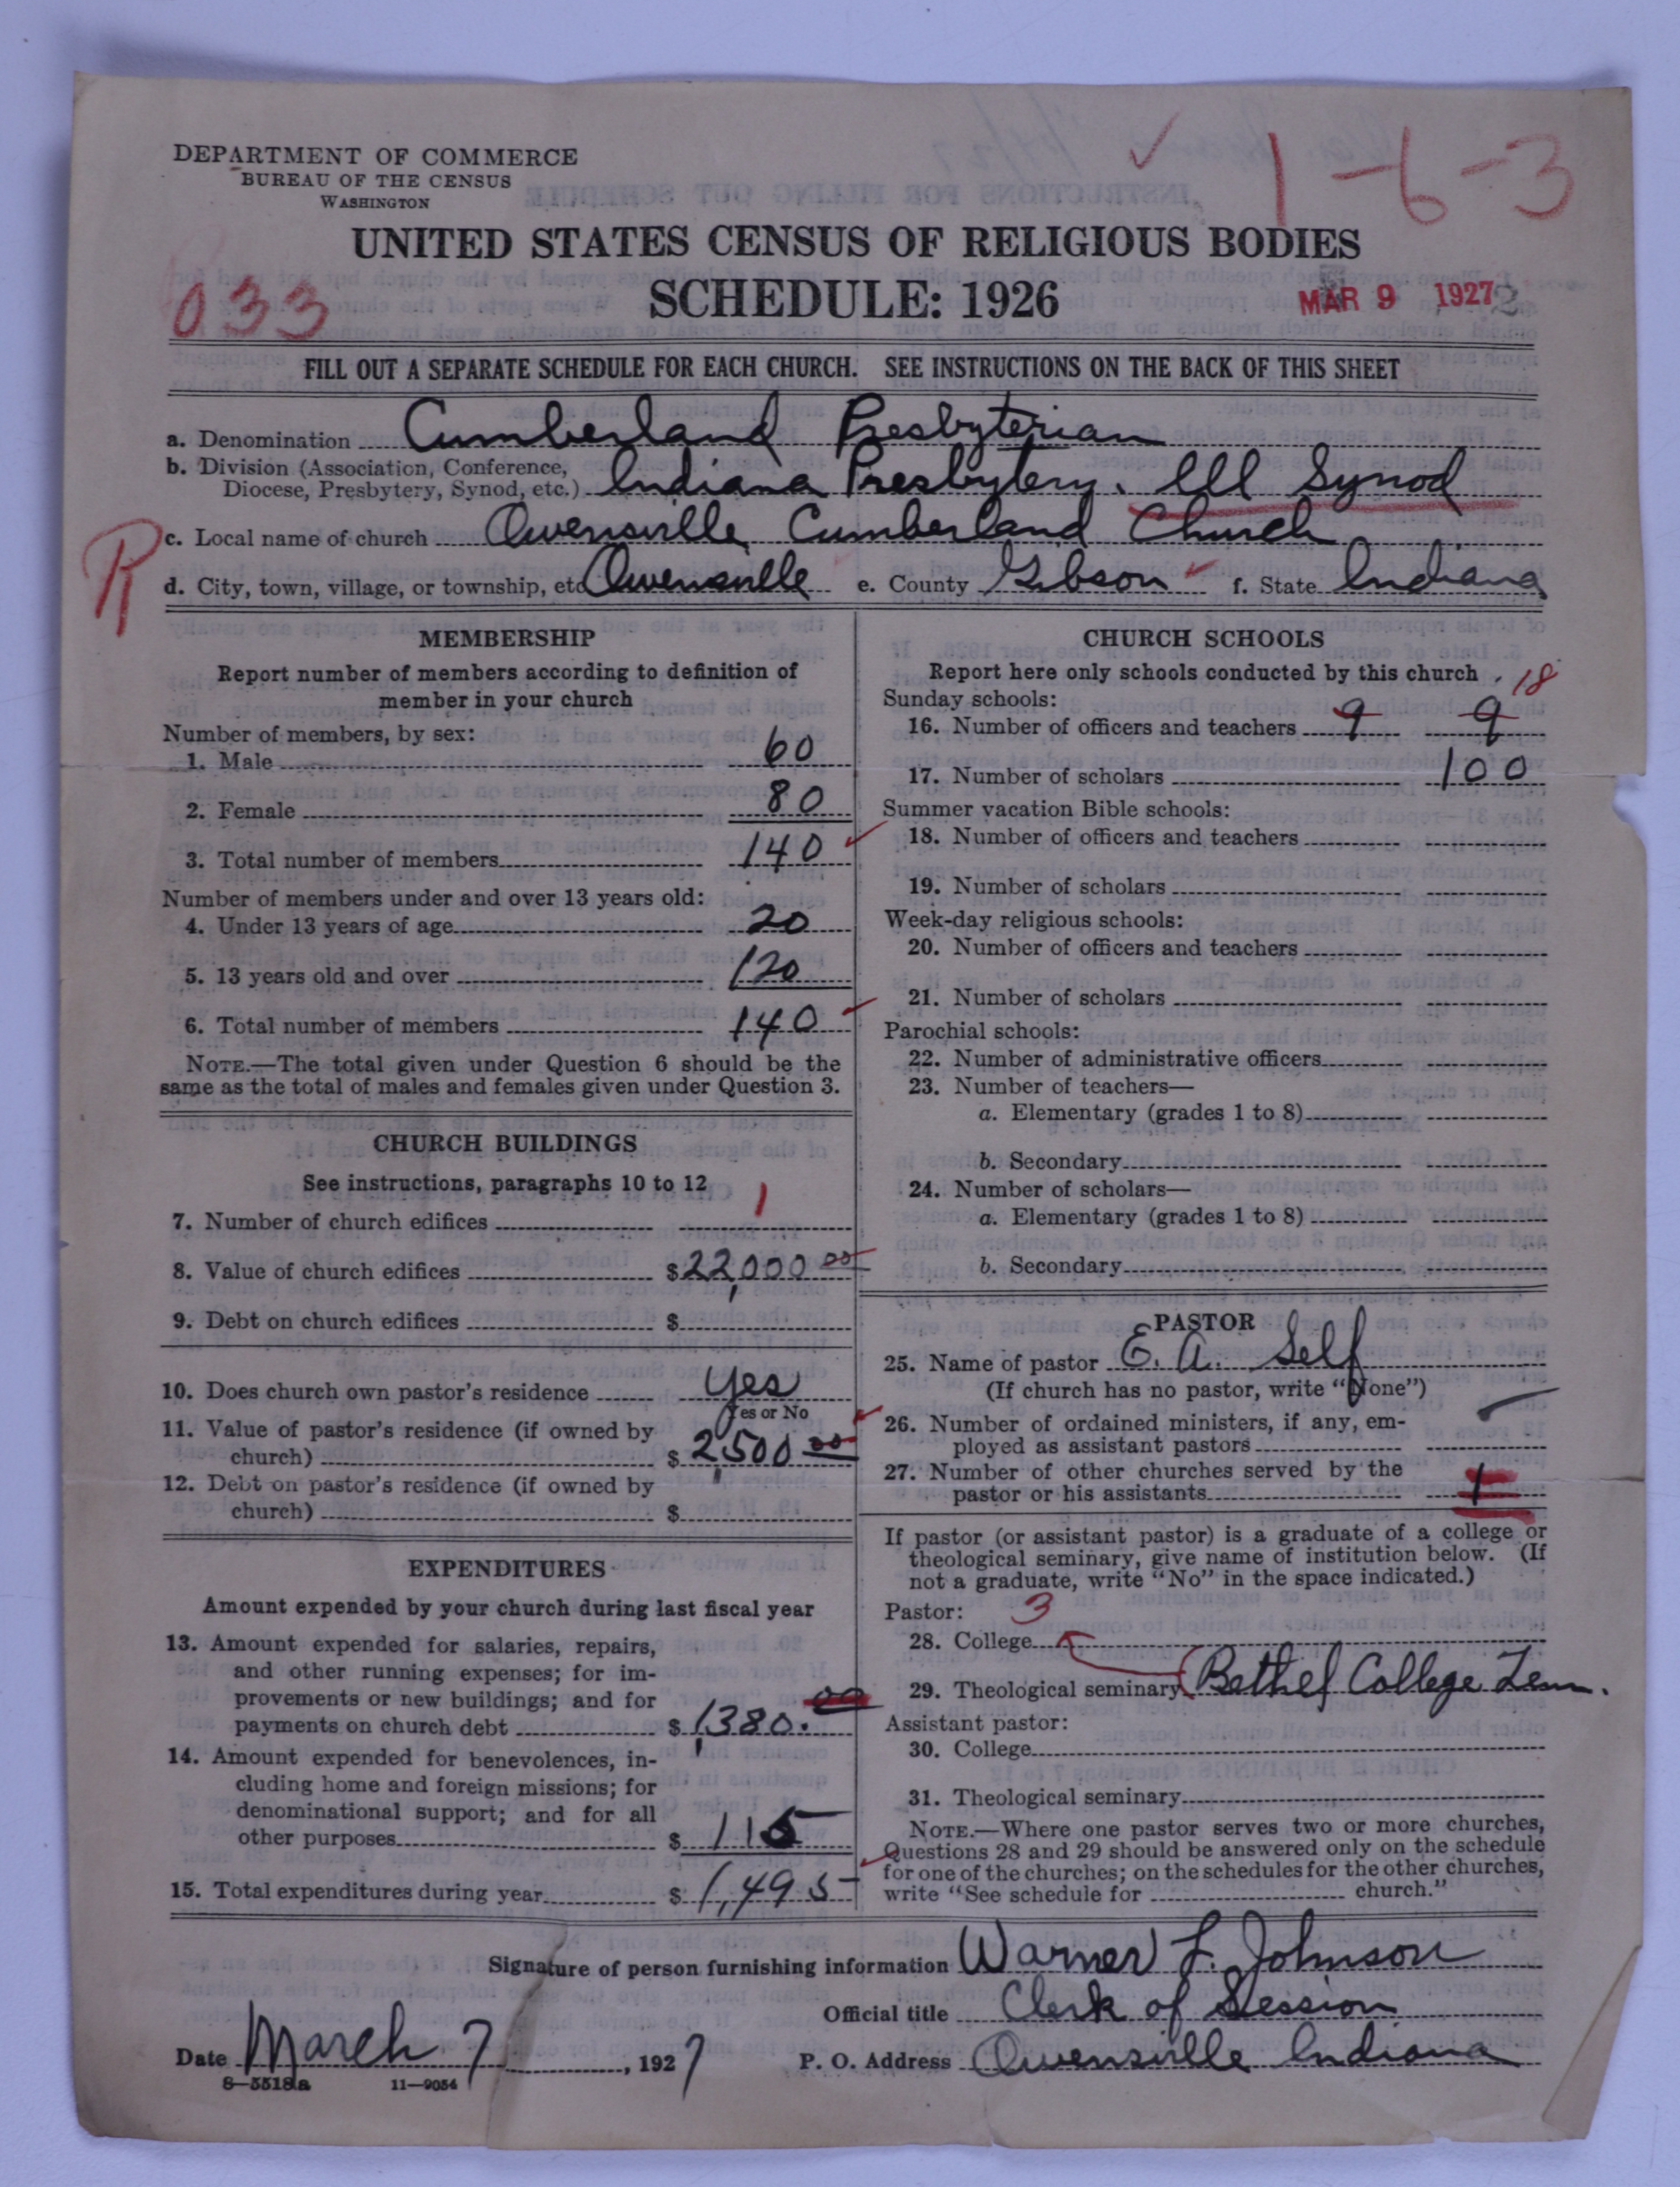 DEPARTMENT OF COMMERCE
BUREAU OF THE CENSUS
WASHINGTON
1-6-3
UNITED STATES CENSUS OF RELIGIOUS BODIES
033
SCHEDULE: 1926
MAR 9 1927
FILL OUT A SEPARATE SCHEDULE FOR EACH CHURCH. SEE INSTRUCTIONS ON THE BACK OF THIS SHEET
a. Denomination Cumberland Presbyterian
b. Division (Association, Conference,
Diocese, Presbytery, Synod, etc.) Indiana Presbytery. Ill Synod
R
c. Local name of church Owensville Cumberland Church
d. City, town, village, or township, etc Owensville e. County Gibson f. State Indiana
MEMBERSHIP
Report number of members according to definition of
member in your church
Number of members, by sex:
1. Male 60
2. Female 80
3. Total number of members 140
Number of members under and over 13 years old:
4. Under 13 years of age 20
5. 13 years old and over 120
6. Total number of members 140
NOTE.—The total given under Question 6 should be the
same as the total of males and females given under Question 3.
CHURCH BUILDINGS
See instructions, paragraphs 10 to 12
7. Number of church edifices 1
8. Value of church edifices $22,000 00
9. Debt on church edifices $
10. Does church own pastor's residence yes
Yes or No
11. Value of pastor's residence (if owned by
church) $ 2,500 00
12. Debt on pastor's residence (if owned by
church) $
EXPENDITURES
Amount expended by your church during last fiscal year
13. Amount expended for salaries, repairs,
and other running expenses; for im-
provements or new buildings; and for
payments on church debt $ 1,380.00
14. Amount expended for benevolences, in-
cluding home and foreign missions; for
denominational support; and for all
other purposes $ 115
15. Total expenditures during year $ 1,495
CHURCH SCHOOLS
Report here only schools conducted by this church
18
Sunday schools:
16. Number of officers and teachers 9 9
17. Number of scholars 100
Summer vacation Bible schools:
18. Number of officers and teachers
19. Number of scholars
Week-day religious schools:
20. Number of officers and teachers
21. Number of scholars
Parochial schools:
22. Number of administrative officers
23. Number of teachers—
a. Elementary (grades 1 to 8)
b. Secondary
24. Number of scholars—
a. Elementary (grades 1 to 8)
b. Secondary
PASTOR
25. Name of pastor E. A. Self
(If church has no pastor, write "None")
26. Number of ordained ministers, if any, em-
ployed as assistant pastors
27. Number of other churches served by the
pastor or his assistants 1
If pastor (or assistant pastor) is a graduate of a college or
theological seminary, give name of institution below. (If
not a graduate, write "No" in the space indicated.)
Pastor: 3
28. College
29. Theological seminary Bethel College Tenn.
Assistant pastor:
30. College
31. Theological seminary
NOTE.—Where one pastor serves two or more churches,
Questions 28 and 29 should be answered only on the schedule
for one of the churches; on the schedules for the other churches,
write "See schedule for church."
Signature of person furnishing information Warner L. Johnson
Official title Clerk of Session
Date March 7, 1927 P. O. Address Owensville Indiana
8—5518a 11—9054